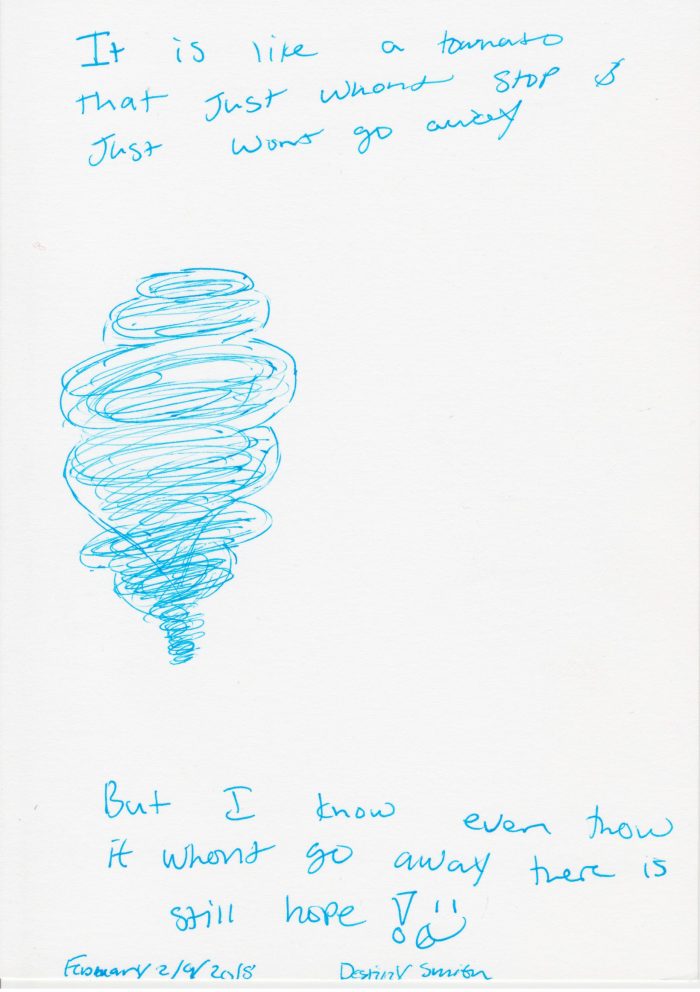 It is like a tornato
that Just whont stop &
Just wont go away
But I know even thow
it whont go away there is
still hope !
February 2/9/2018 Destiny Smith